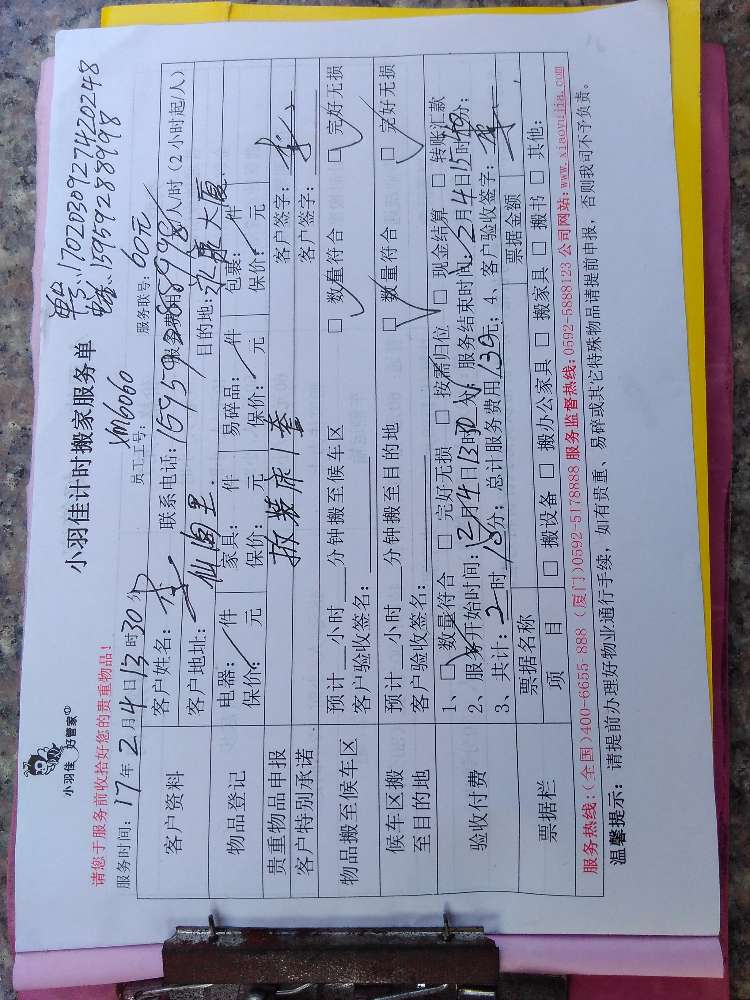 小羽佳 好管家
小羽佳计时搬家服务单
单号:17020309274420248
电话:15959288998
请您于服务前收拾好您的贵重物品!
员工工号: XM6060
服务联号:
服务时间: 17年2月4日13时30分
服务费用 60元/人/时(2小时起/人)
客户资料
客户姓名: 李
联系电话: 15959288998
客户地址: 仙阁里
目的地: 永康大厦
物品登记
电器: 件 家具: 件 易碎品: 件 包裹: 件
保价: 元 保价: 元 保价: 元 保价: 元
贵重物品申报
拆装床1套
客户签字: 李
客户特别承诺
客户签字:
物品搬至候车区
预计__小时__分钟搬至候车区 □ 数量符合 □ 完好无损
客户验收签名:
候车区搬至目的地
预计__小时__分钟搬至目的地 □ 数量符合 □ 完好无损
客户验收签名:
验收付费
1、□ 数量符合 □ 完好无损 □ 按需归位 □ 现金结算 □ 转账汇款
2、服务开始时间: 2月4日13时30分; 服务结束时间: 2月4日15时40分;
3、共计: 2时18分; 总计服务费用 139元; 4、客户验收签字: 李
票据栏
票据名称
票据金额
项 目
□ 搬设备 □ 搬办公家具 □ 搬家具 □ 搬书 □ 其他:
服务热线:(全国)400-6655-888 (厦门)0592-5178888 服务监督热线:0592-5888123 公司网站:www.xiaoyujia.com
温馨提示: 请提前办理好物业通行手续,如有贵重、易碎或其它特殊物品请提前申报,否则我司不予负责。